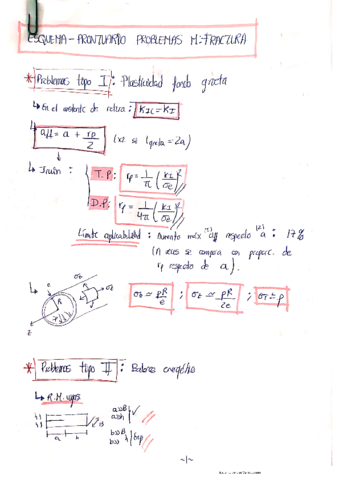 ESQUEMA-PRONTUARIO PROBLEMAS M:FRACTURA
* Problemas tipo I : Plasticidad fondo grieta
↳ En el instante de rotura : KIC=KI
↳ aeff = a + rp/2 (x2 si Lgrieta=2a)
↳ Irwin : { T.P: rp = 1/π (KI/σe)²
D.P: rp = 1/4π (KI/σe)²
Límite aplicabilidad : Aumento máx aff respecto a : 17%
(A veces se compara con proporc. de
rp respecto de a).
σt ≃ pR/e ; σt ≃ pR/2e ; σr = p
* Problemas tipo II : Balance energético
↳ R.M. vigas
a b
-1-